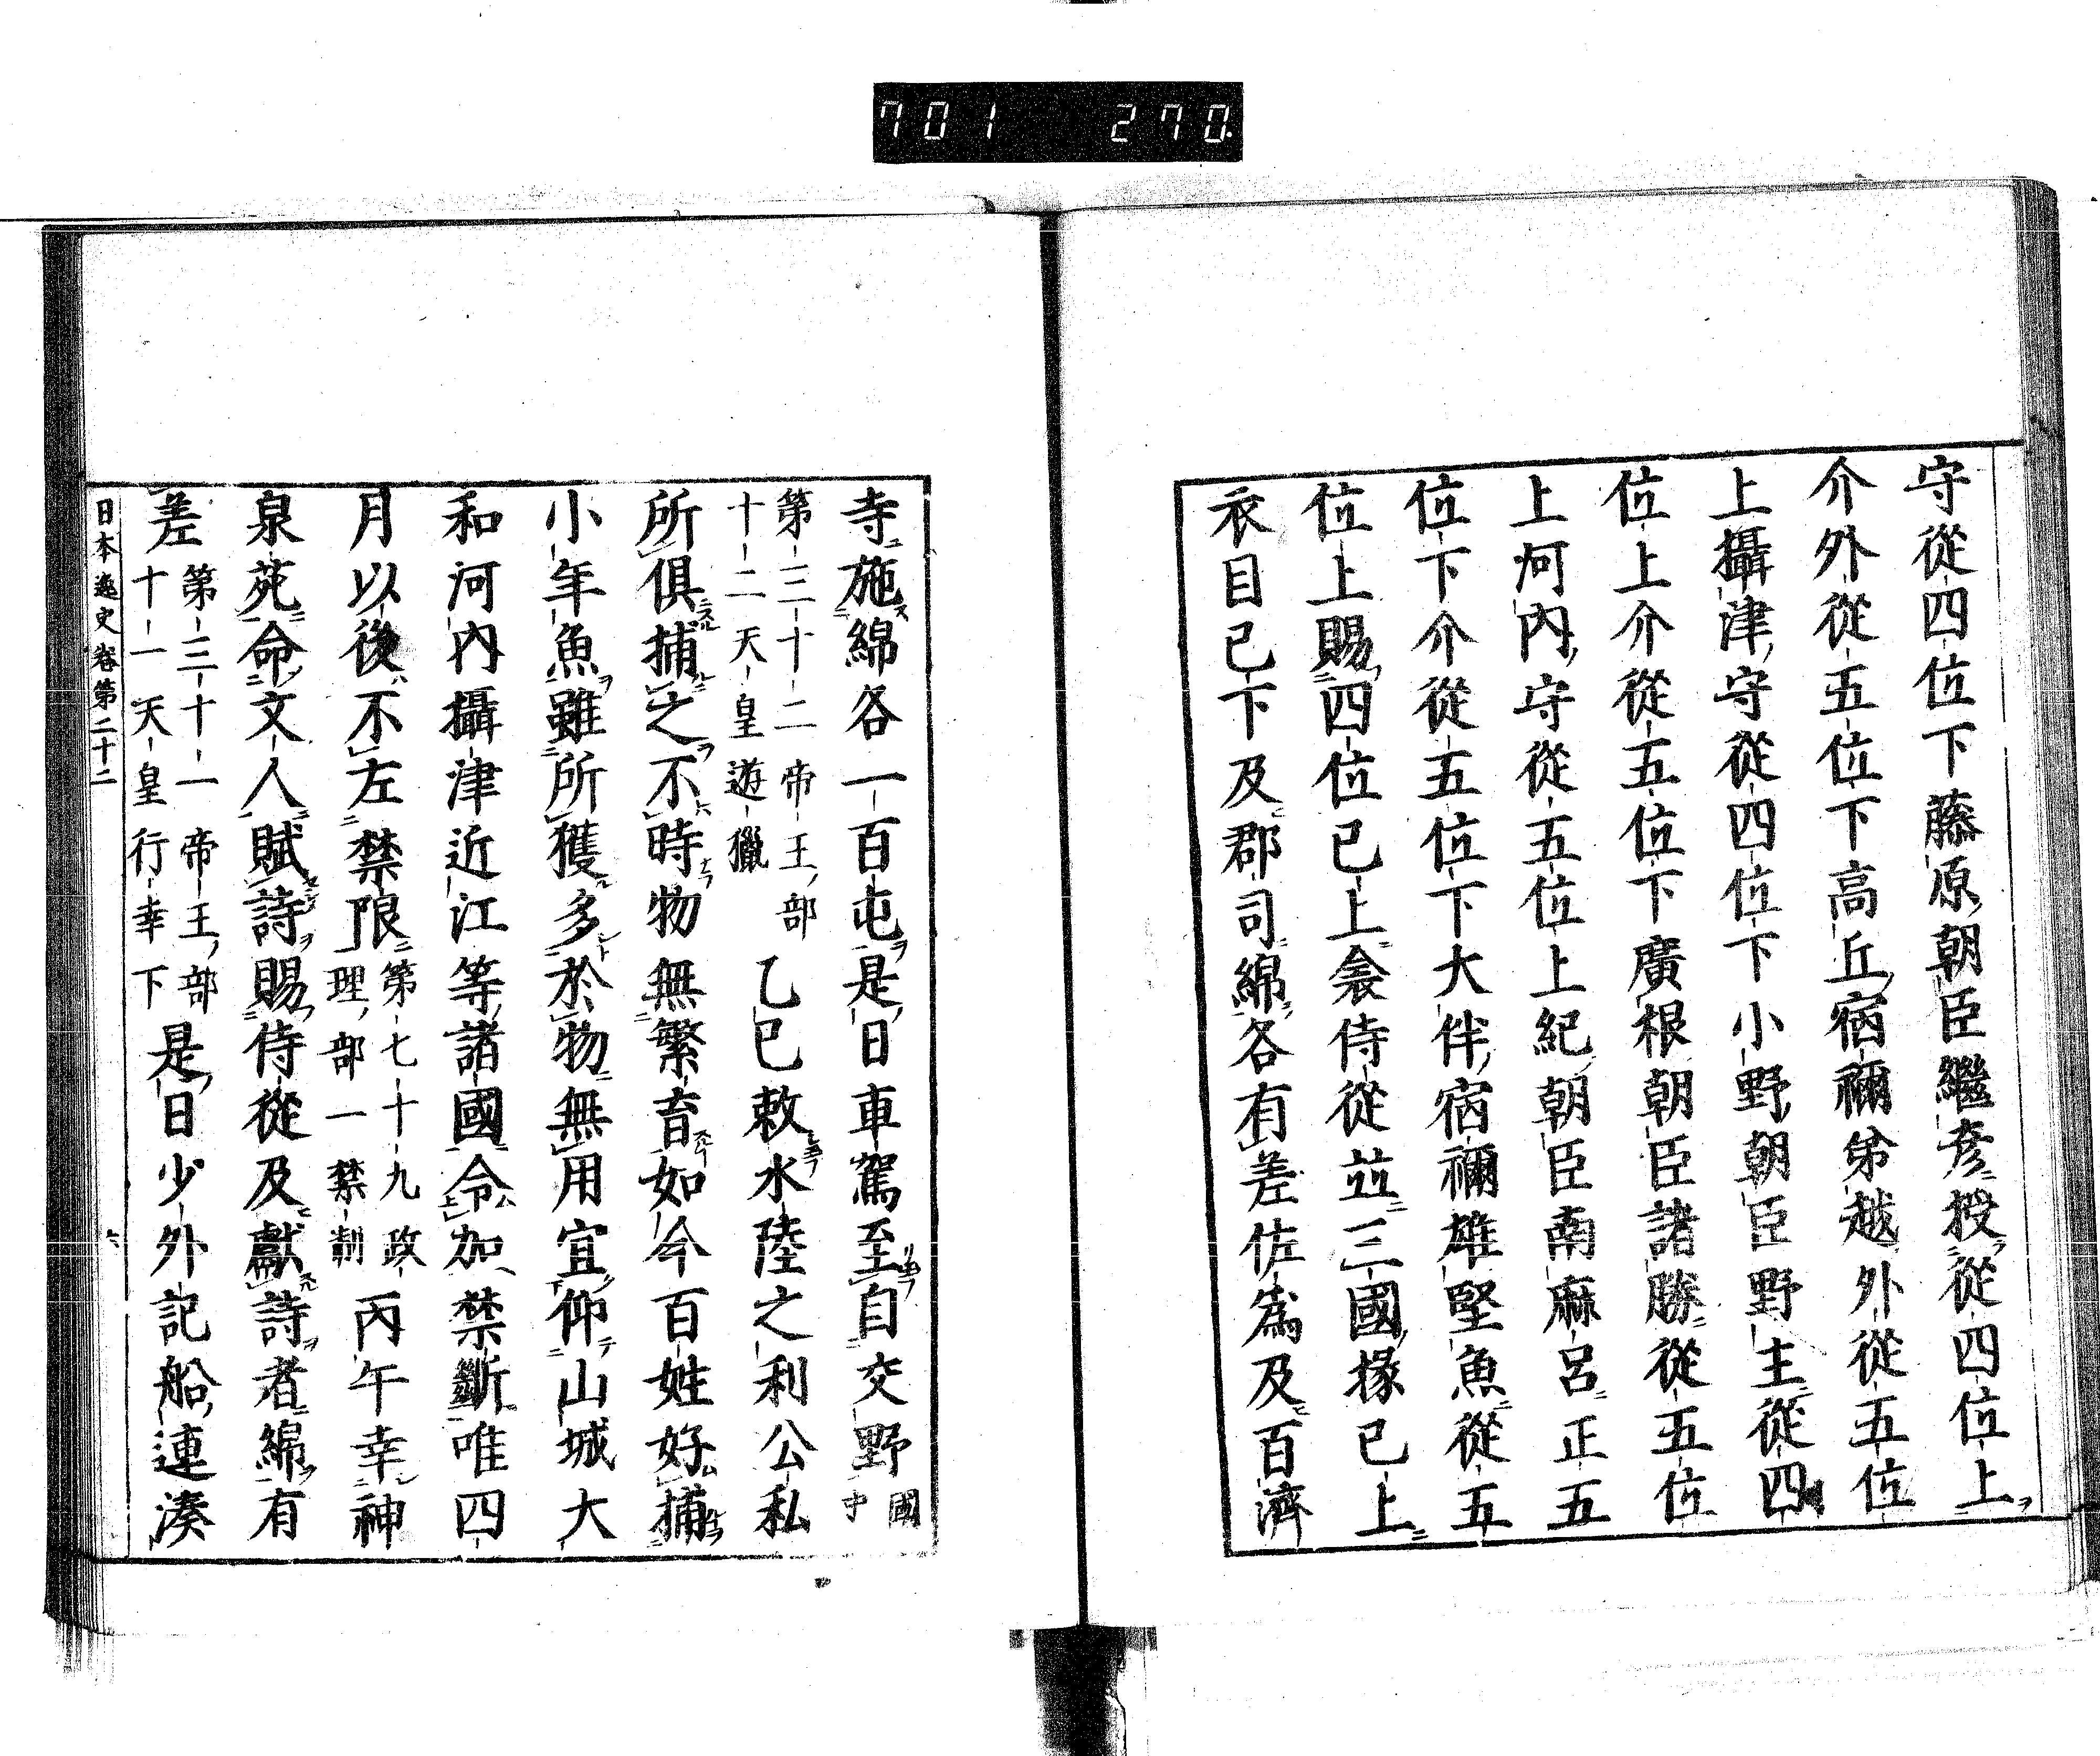 701 270
守從四位下藤原朝臣繼彦授從四位上
介外從五位下高丘宿禰弟越外從五位
上攝津守從四位下小野朝臣野主從四
位上介從五位下廣根朝臣諸勝從五位
上河内守從五位上紀朝臣南麻呂正五
位下介從五位下大伴宿禰雄堅魚從五
位上賜四位已上衾侍從並三國掾已上
衣目已下及郡司綿各有差佐爲及百濟
寺施綿各一百屯是日車駕至自交野國中
第三十二帝王部
十二天皇遊獵
乙巳敕水陸之利公私
所俱捕之不時物無繁育如今百姓好捕
小年魚雖所獲多於物無用宜仰山城大
和河内攝津近江等諸國令加禁斷唯四
月以後不在禁限
第七十九政
理部一禁制
丙午幸神
泉苑命文人賦詩賜侍從及獻詩者綿有
差
第三十一帝王部
十一天皇行幸下
是日少外記船連湊
日本逸史卷第二十二 六